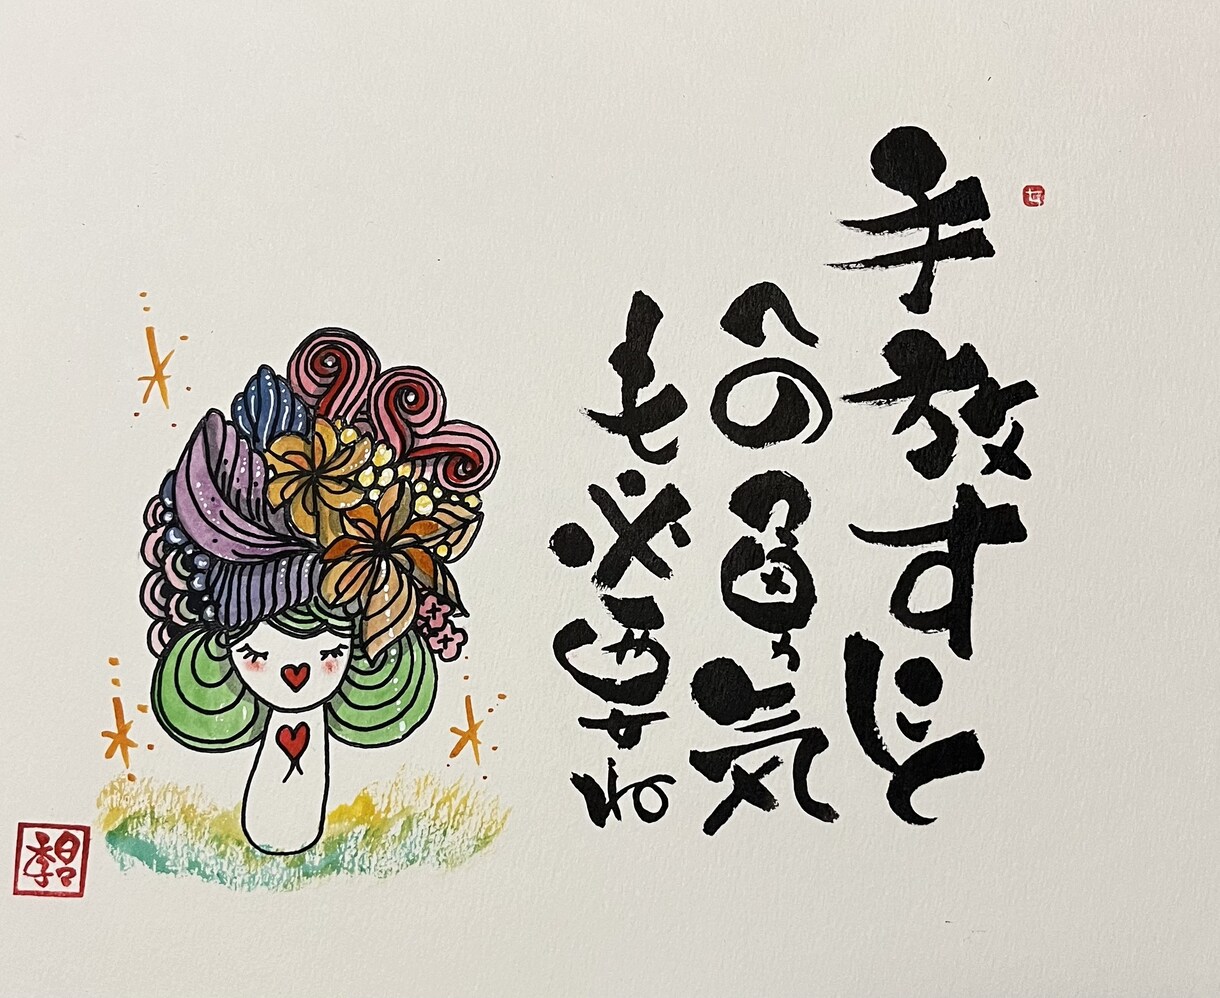 手放すこと
への勇気
も必要ね